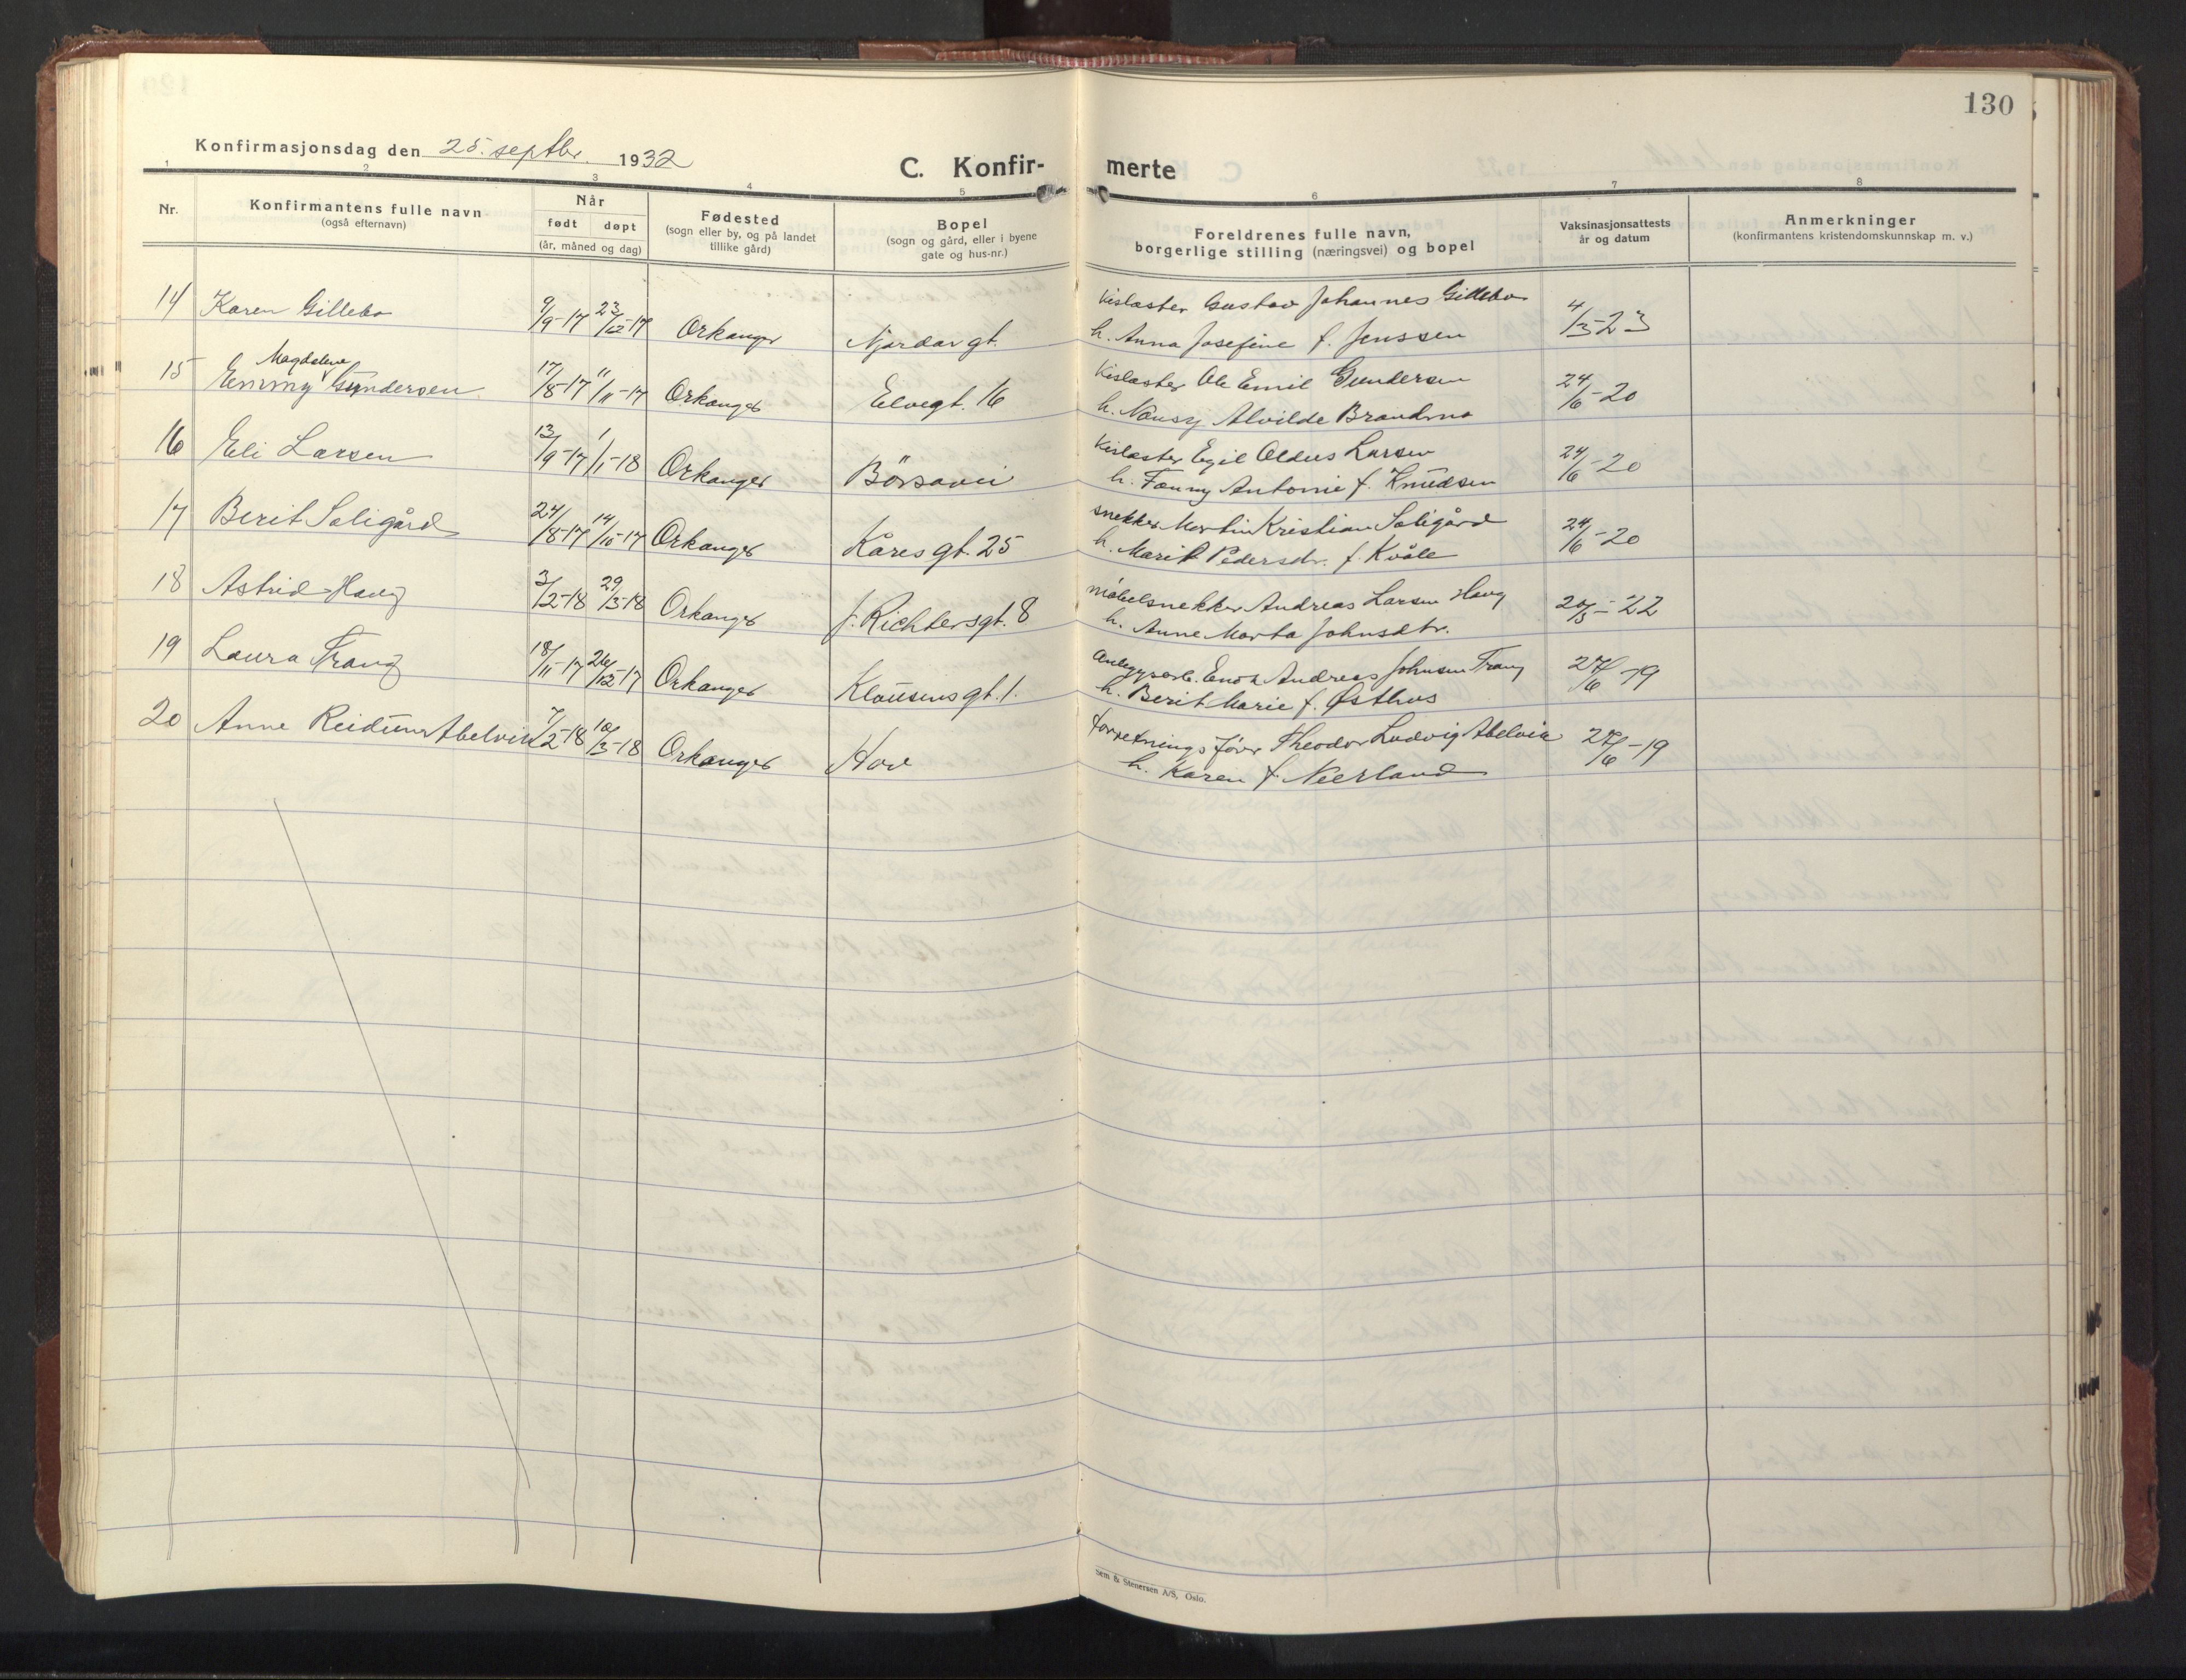 130
Konfirmasjonsdag den 25. septbr. 1932
C. Konfir-
merte
1 2 3 4 5 6 7 8
Nr.
Konfirmantens fulle navn
(også efternavn)
Når
født døpt
(år, måned og dag)
Fødested
(sogn eller by, og på landet
tillike gård)
Bopel
(sogn og gård, eller i byene
gate og hus-nr.)
Foreldrenes fulle navn,
borgerlige stilling (næringsvei) og bopel
Vaksinasjonsattests
år og datum
Anmerkninger
(konfirmantens kristendomskunnskap m. v.)
14 Karen Gillebo 9/9-17 23/12-17 Orkanger Njardar gt. Kislaster Gustav Johannes Gillebo 4/3-23
h. Anna Josefine f. Jenssen
Magdalene
15 Emmy Gundersen 17/8-17 11/11-17 Orkanger Elvegt. 16 Kislaster Ole Emil Gundersen 24/6-20
h. Nansy Alvilde
16 Eli Larsen 13/9-17 1/1-18 Orkanger Börsavei Kislaster Egil Oldus Larsen 24/6-20
h. Fanny Antonie f. Knudsen
17 Berit Soligård 24/8-17 14/10-17 Orkanger Kåres gt. 25 snekker Martin Kristian Soligård 24/6-20
h. Marit Pedersdr. f. Kvåle
18 Astrid Haug 3/2-18 29/3-18 Orkanger J. Richtersgt. 8 möbelsnekker Andreas Larsen Haug 20/5-22
h. Anne Marta Johnsdtr.
19 Laura Trang 18/11-17 26/12-17 Orkanger Klausens gt. 1. Anleggsarb. Enok Andreas Johnsen Trang 27/6-19
h. Berit Marie f. Østhus
20 Anne Reidun Abelvik 7/2-18 10/3-18 Orkanger Hov forretningsförer Theodor Ludvig Abelvik 27/6-19
h. Karen f. Neerland
Sem & Stenersen A/S, Oslo.